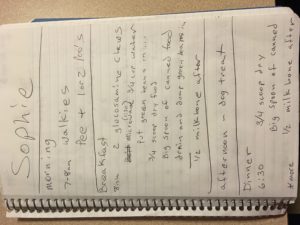 Sophie
morning
7-8am walkies
Pee + 1 or 2 Poo's
Breakfast
8am 2 glucosamine chews
microwave 3/4 cup water
put green beans in
3/4 scoop dry food
Big spoon of canned food
drain and dump green beans in
1/2 milkbone after
afternoon - dog treat
Dinner
6:30 3/4 scoop dry
Big spoon of canned
1/2 milk bone after
*more